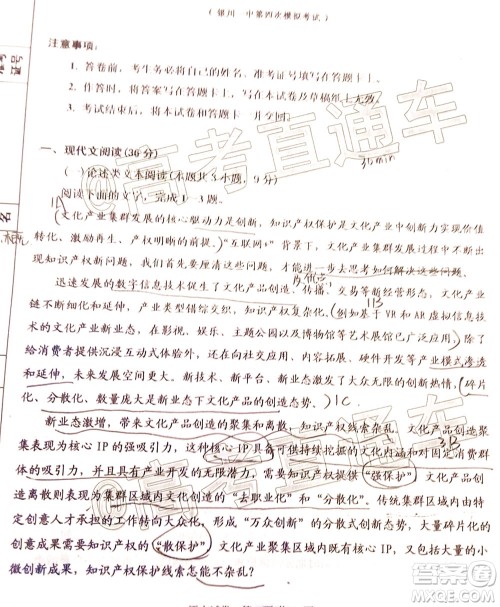 （银川一中第四次模拟考试）
注意事项：
1. 答卷前，考生务必将自己的姓名、准考证号填写在答题卡上。
2. 作答时，将答案写在答题卡上。写在本试卷及草稿纸上无效。
3. 考试结束后，将本试卷和答题卡一并交回。
一、现代文阅读（36分）
35min
（一）论述类文本阅读（本题共3小题，9分）
阅读下面的文字，完成1～3题。
1A
文化产业集群发展的核心驱动力是创新，知识产权保护是文化产业中创新力实现价值
转化、激励再生、产权明晰的前提。"互联网+"背景下，文化产业集群在发展过程中涌现
出知识产权新问题，我们首先要厘清这些新问题，进一步去思考如何解决这些问题。
迅速发展的数字信息技术促生了产品创造、传播、交易等新经营形态，文化产业
集群化和延伸，产业类型错综交织，知识产权复杂化。例如基于VR和AR虚拟现实技
术的文化产业新业态，在影视、娱乐、主题以及博物馆等艺术展馆已广泛应用，除了
1B
给消费者提供沉浸互动式体验外，围绕产品的内容拓展、硬件开发等产业模式渗透
和延伸，未来发展空间更大。新技术、新平台、新业态激发了无限的创新热情，碎片
化、分散化、数量庞大是新业态下文化产品的创造态势。
1C
新业态激增，带来文化产品创造的聚集和离散，知识产权线索杂乱。文化产品创造聚
3B
集表现为核心IP的强吸引力，这种核心IP具备可供持续挖掘的文化内涵与全消费群
体的吸引力，并具有产业开发的无限延展性，需要知识产权的"强保护"。文化产品创
造离散则表现为集群区域内文化创造的"去职业化"和"分散化"。传统集群区域内由特
定创意人才担任的工作转向大众化，形成"万众创新"的创意创新态势，大量碎片化的
创意成果需要知识产权的"散保护"。文化产业聚集区域内既有核心IP，又有散落的小
微创新成果，知识产权保护线索怎能不杂乱？
@高考直通车
答案圈
MXQE.COM